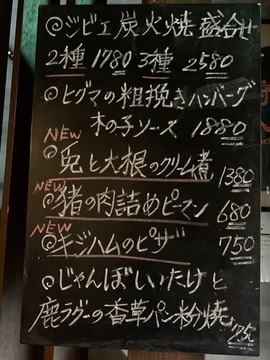 ◎ジビエ炭火焼盛合せ
2種1780 3種2580
◎ヒグマの粗挽きハンバーグ
木の子ソース 1880
NEW
◎兎と大根のクリーム煮 1380
NEW
◎猪の肉詰めピーマン 680
NEW
◎キジハムのピザ 750
◎じゃんぼしいたけと
鹿ラグーの香草パン粉焼 750